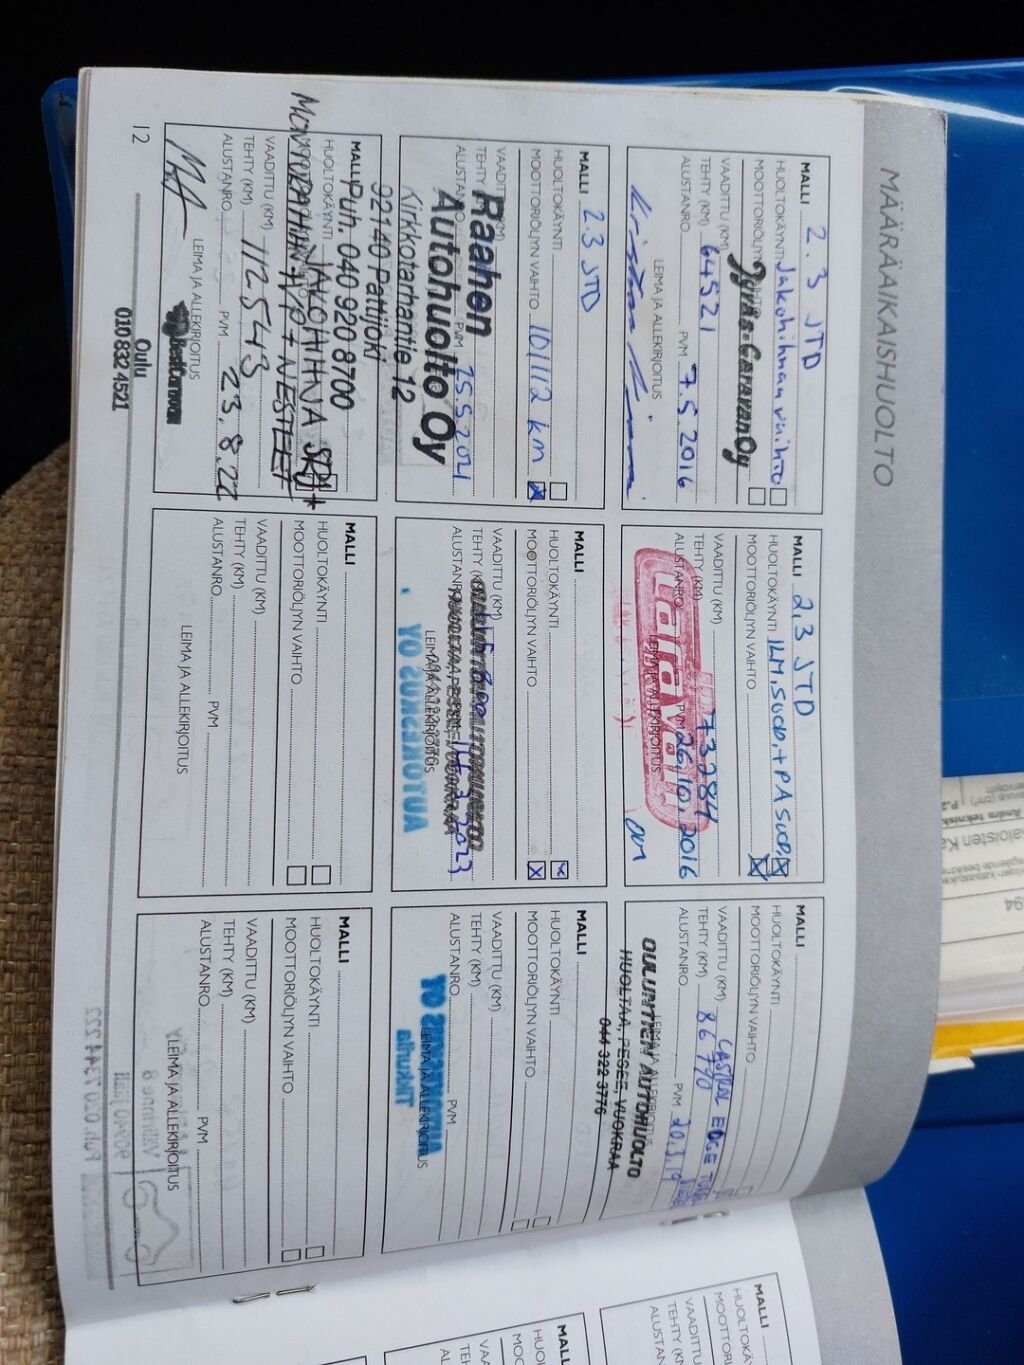 MÄÄRÄAIKAISHUOLTO
MALLI 2.3 JTD
HUOLTOKÄYNTI Jakohihnan vaihto
MOOTTORIÖLJYN VAIHTO
Jyväs-Caravan Oy
VAADITTU (KM)
TEHTY (KM) 64521
PVM 7.5.2016
ALUSTANRO
LEIMA JA ALLEKIRJOITUS
MALLI 2,3 JTD
HUOLTOKÄYNTI ILM.SUOD.+PA SUOD.
MOOTTORIÖLJYN VAIHTO
VAADITTU (KM)
TEHTY (KM) 73284
ALUSTANRO PVM 26.10.2016
Caravan
LEIMA JA ALLEKIRJOITUS
MALLI
HUOLTOKÄYNTI
MOOTTORIÖLJYN VAIHTO
VAADITTU (KM) CASTROL EDGE
TEHTY (KM) 86 770
ALUSTANRO PVM 20.3.19
LEIMA JA ALLEKIRJOITUS
OULUNTIEN AUTOHUOLTO
HUOLTAA, PESEE, VUOKRAA
044 322 3776
MALLI 2.3 JTD
HUOLTOKÄYNTI
MOOTTORIÖLJYN VAIHTO 101112 km
VAADITTU (KM)
TEHTY (KM)
ALUSTANRO PVM 25.5.2021
Raahen
Autohuolto Oy
Kirkkotarhantie 12
92140 Pattijoki
Puh. 040 920 8700
MALLI
HUOLTOKÄYNTI
MOOTTORIÖLJYN VAIHTO
VAADITTU (KM)
TEHTY (KM)
ALUSTANRO PVM 14.3.2023
HUOLTAA, PESEE, VUOKRAA
LEIMA JA ALLEKIRJOITUS
MALLI
HUOLTOKÄYNTI
MOOTTORIÖLJYN VAIHTO
VAADITTU (KM)
TEHTY (KM)
ALUSTANRO PVM
LEIMA JA ALLEKIRJOITUS
MALLI
HUOLTOKÄYNTI JAKOHIHNA
VAADITTU (KM)
TEHTY (KM) 112543
ALUSTANRO PVM 23.8.22
LEIMA JA ALLEKIRJOITUS
BestCaravan
Oulu
010 832 4521
MALLI
HUOLTOKÄYNTI
MOOTTORIÖLJYN VAIHTO
VAADITTU (KM)
TEHTY (KM)
ALUSTANRO PVM
LEIMA JA ALLEKIRJOITUS
MALLI
HUOLTOKÄYNTI
MOOTTORIÖLJYN VAIHTO
VAADITTU (KM)
TEHTY (KM)
ALUSTANRO PVM
LEIMA JA ALLEKIRJOITUS
12
MALLI
HUOLTOKÄYNTI
ALUSTANRO
MALLI